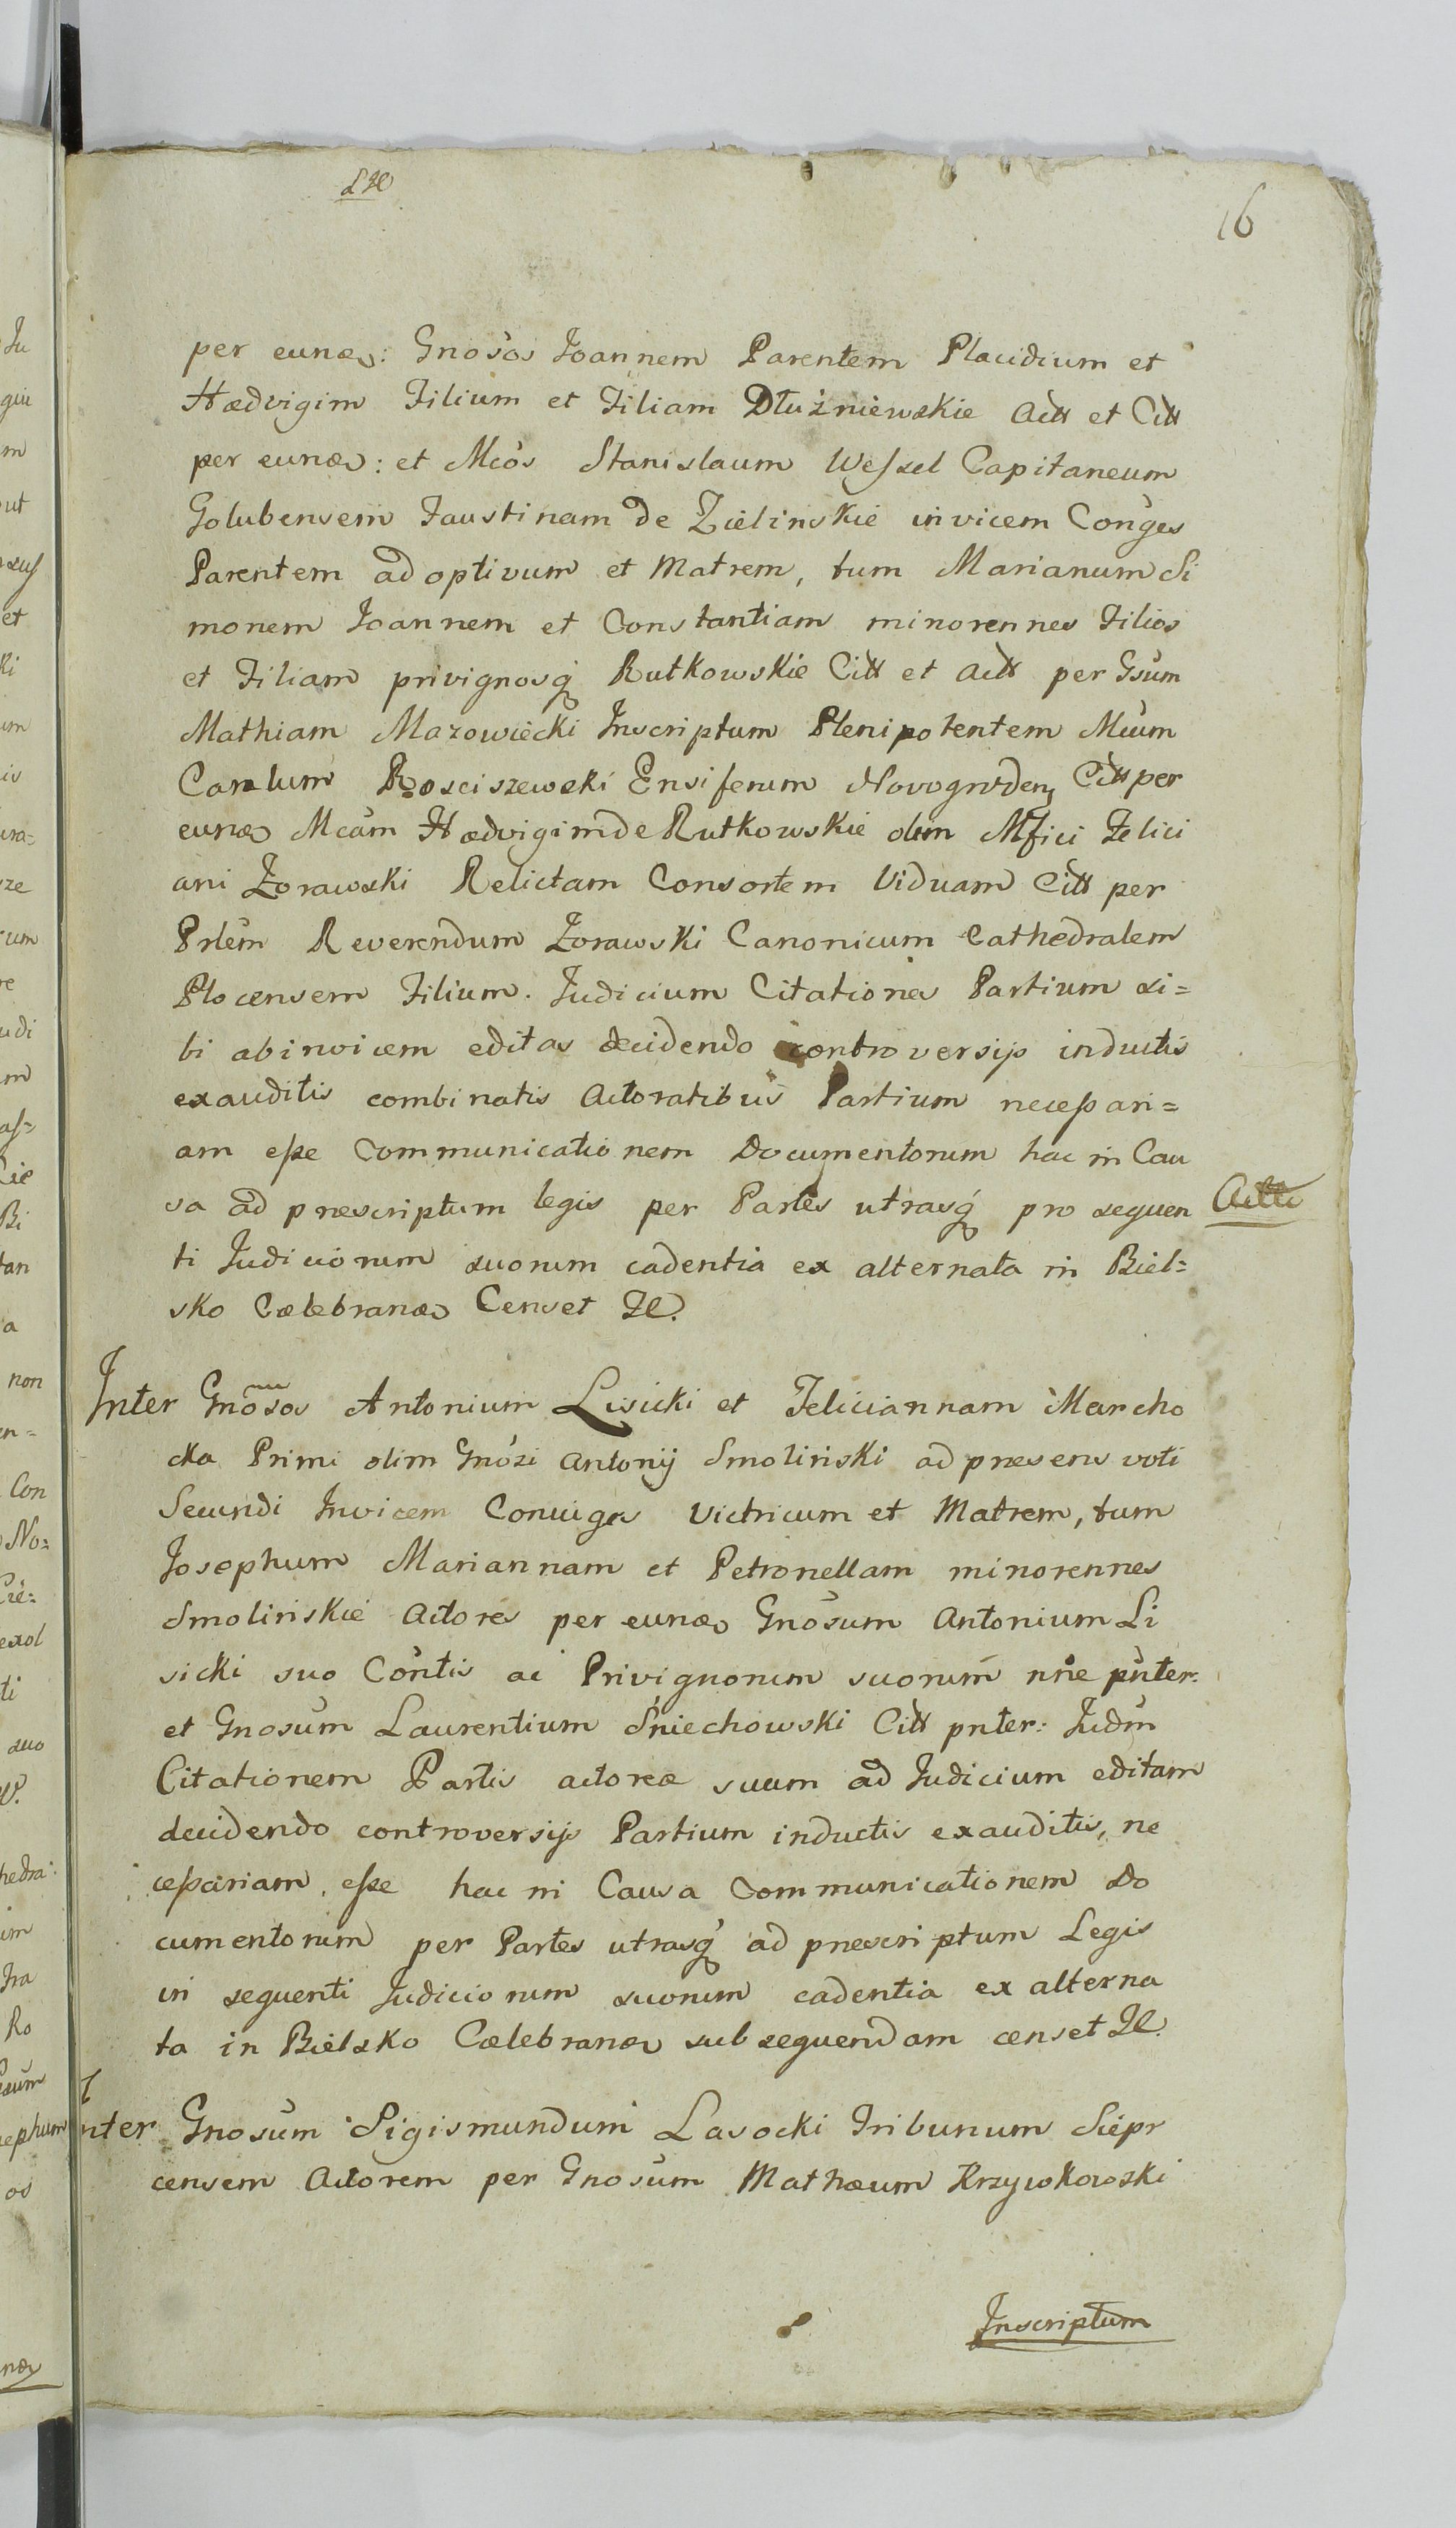 16
per eund: Gnosos Joannem Parentem Placidium et
Hædvigim Filium et Filiam Dłużniewskie Actt et Citt
per eund: et Mcos Stanislaum Wessel Capitaneum
Golubensem Faustinam de Zielinskie invicem Conges
Parentem adoptivum et Matrem, tum Marianum Si
monem Joannem et Constantiam minorennes Filios
et Filiam privignosq Rutkowskie Citt et Actt per Gsum
Mathiam Mazowiecki Inscriptum Plenipotentem Mcum
Carolum Rosciszewski Ensiferum Novogrden Citt per
eund Mcam Hædvigim de Rutkowskie olim Mfici Felici
ani Zorawski Relictam Consortem Viduam Citt per
Prlem Reverendum Zorawski Canonicum Cathedralem
Plocensem Filium. Judicium Citationes Partium si=
bi abinvicem editas decidendo controversijs inductis
exauditis combinatis Actoratibus Partium necessari=
am esse Communicationem Documentorum hac in Cau
sa ad prescriptum legis per Partes utrasq pro sequen
ti Judiciorum suorum cadentia ex alternata in Biel=
sko Cælebrand Censet
Inter Gnosos Antonium Lisicki et Feliciannam Marcho
cka Primi olim Gnosi Antonij Smoliński ad presens voti
Secundi Invicem Conuiges Victricum et Matrem, tum
Josephum Mariannam et Petronellam minorennes
Smolińskie Actores per eund Gnosum Antonium Li
sicki suo Contis ac Privignorum suorum nne pnter.
et Gnosum Laurentium Sniechowski Citt pnter: Judm
Citationem Partis actoreæ suum ad Judicium editam
decidendo controversijs Partium inductis exauditis, ne
cessariam esse hac in Causa Communicationem Do
cumentorum per Partes utrasq ad prescriptum Legis
in sequenti Judiciorum suorum cadentia ex alterna
ta in Bielsko Cælebrand subsequendam censet
Inter Gnosum Sigismundum Lasocki Tribunum Siepr
censem Actorem per Gnosum Mathæum Krzywkowski
Inscriptum